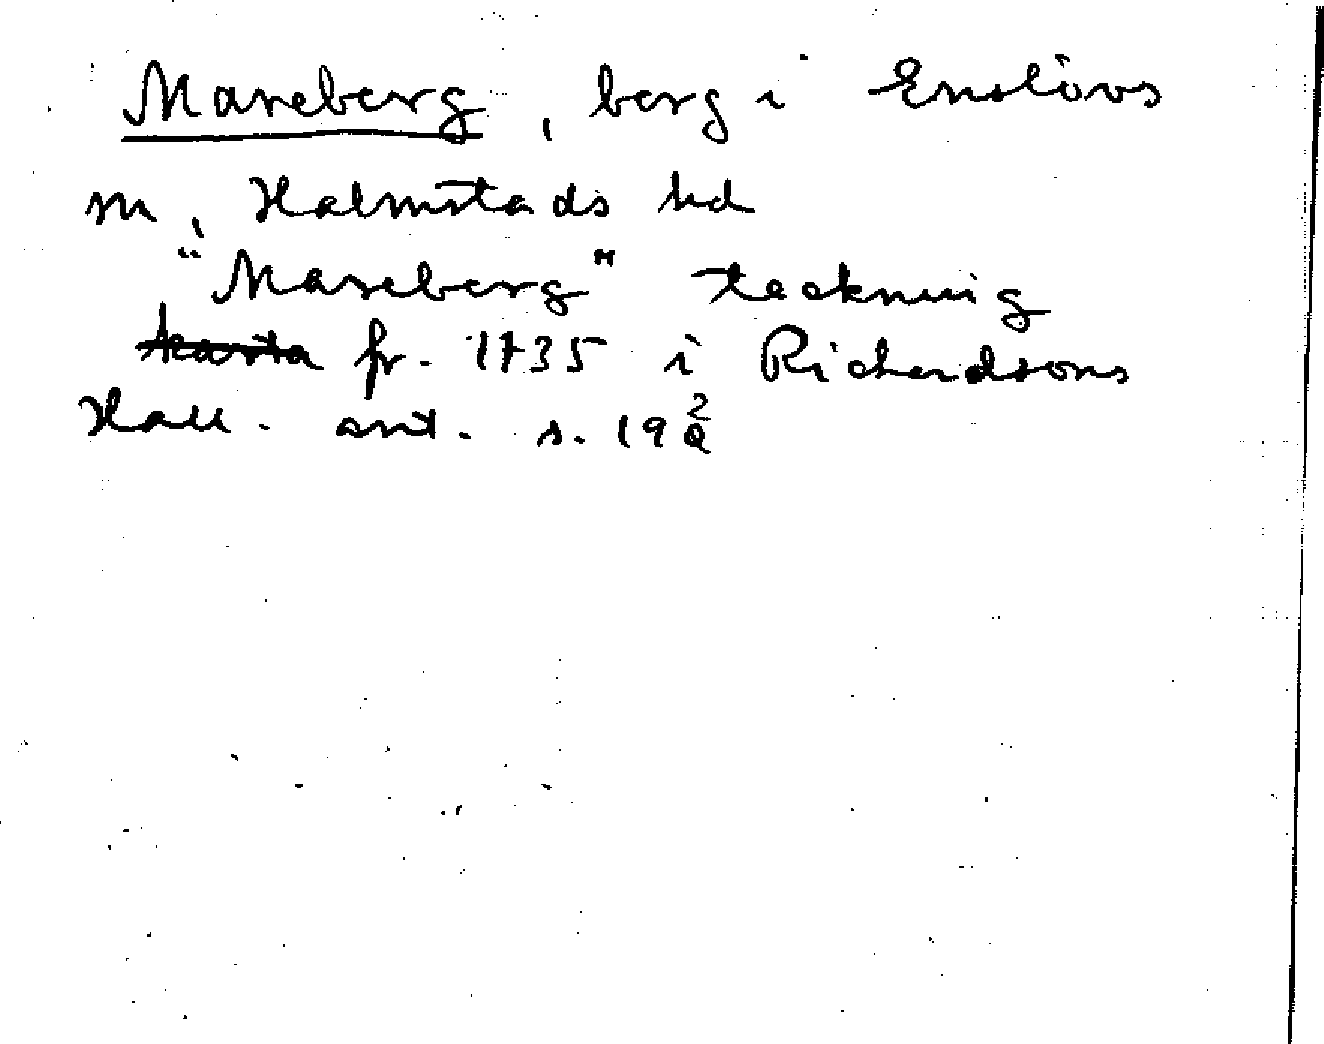 Mareberg, berg i Enslövs
sn, Halmstads hd
"Mareberg" teckning
karta fr. 1735 i Richardsons
Hall. ant. s. 192